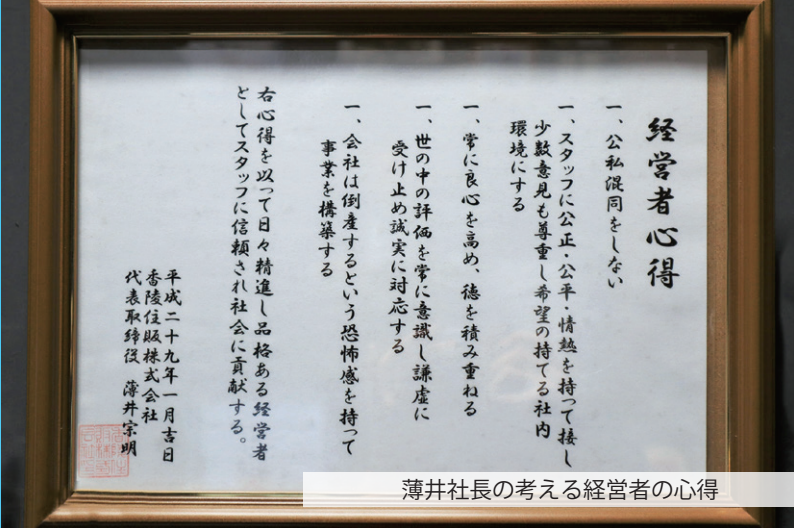 経営者心得
一、公私混同をしない
一、スタッフに公正・公平・情熱を持って接し
少数意見も尊重し希望の持てる社内
環境にする
一、常に良心を高め、徳を積み重ねる
一、世の中の評価を常に意識し謙虚に
受け止め誠実に対応する
一、会社は倒産するという恐怖感を持って
事業を構築する
右心得を以って日々精進し品格ある経営者
としてスタッフに信頼され社会に貢献する。
平成二十九年一月吉日
香陵住販株式会社
代表取締役 薄井宗明
薄井社長の考える経営者の心得